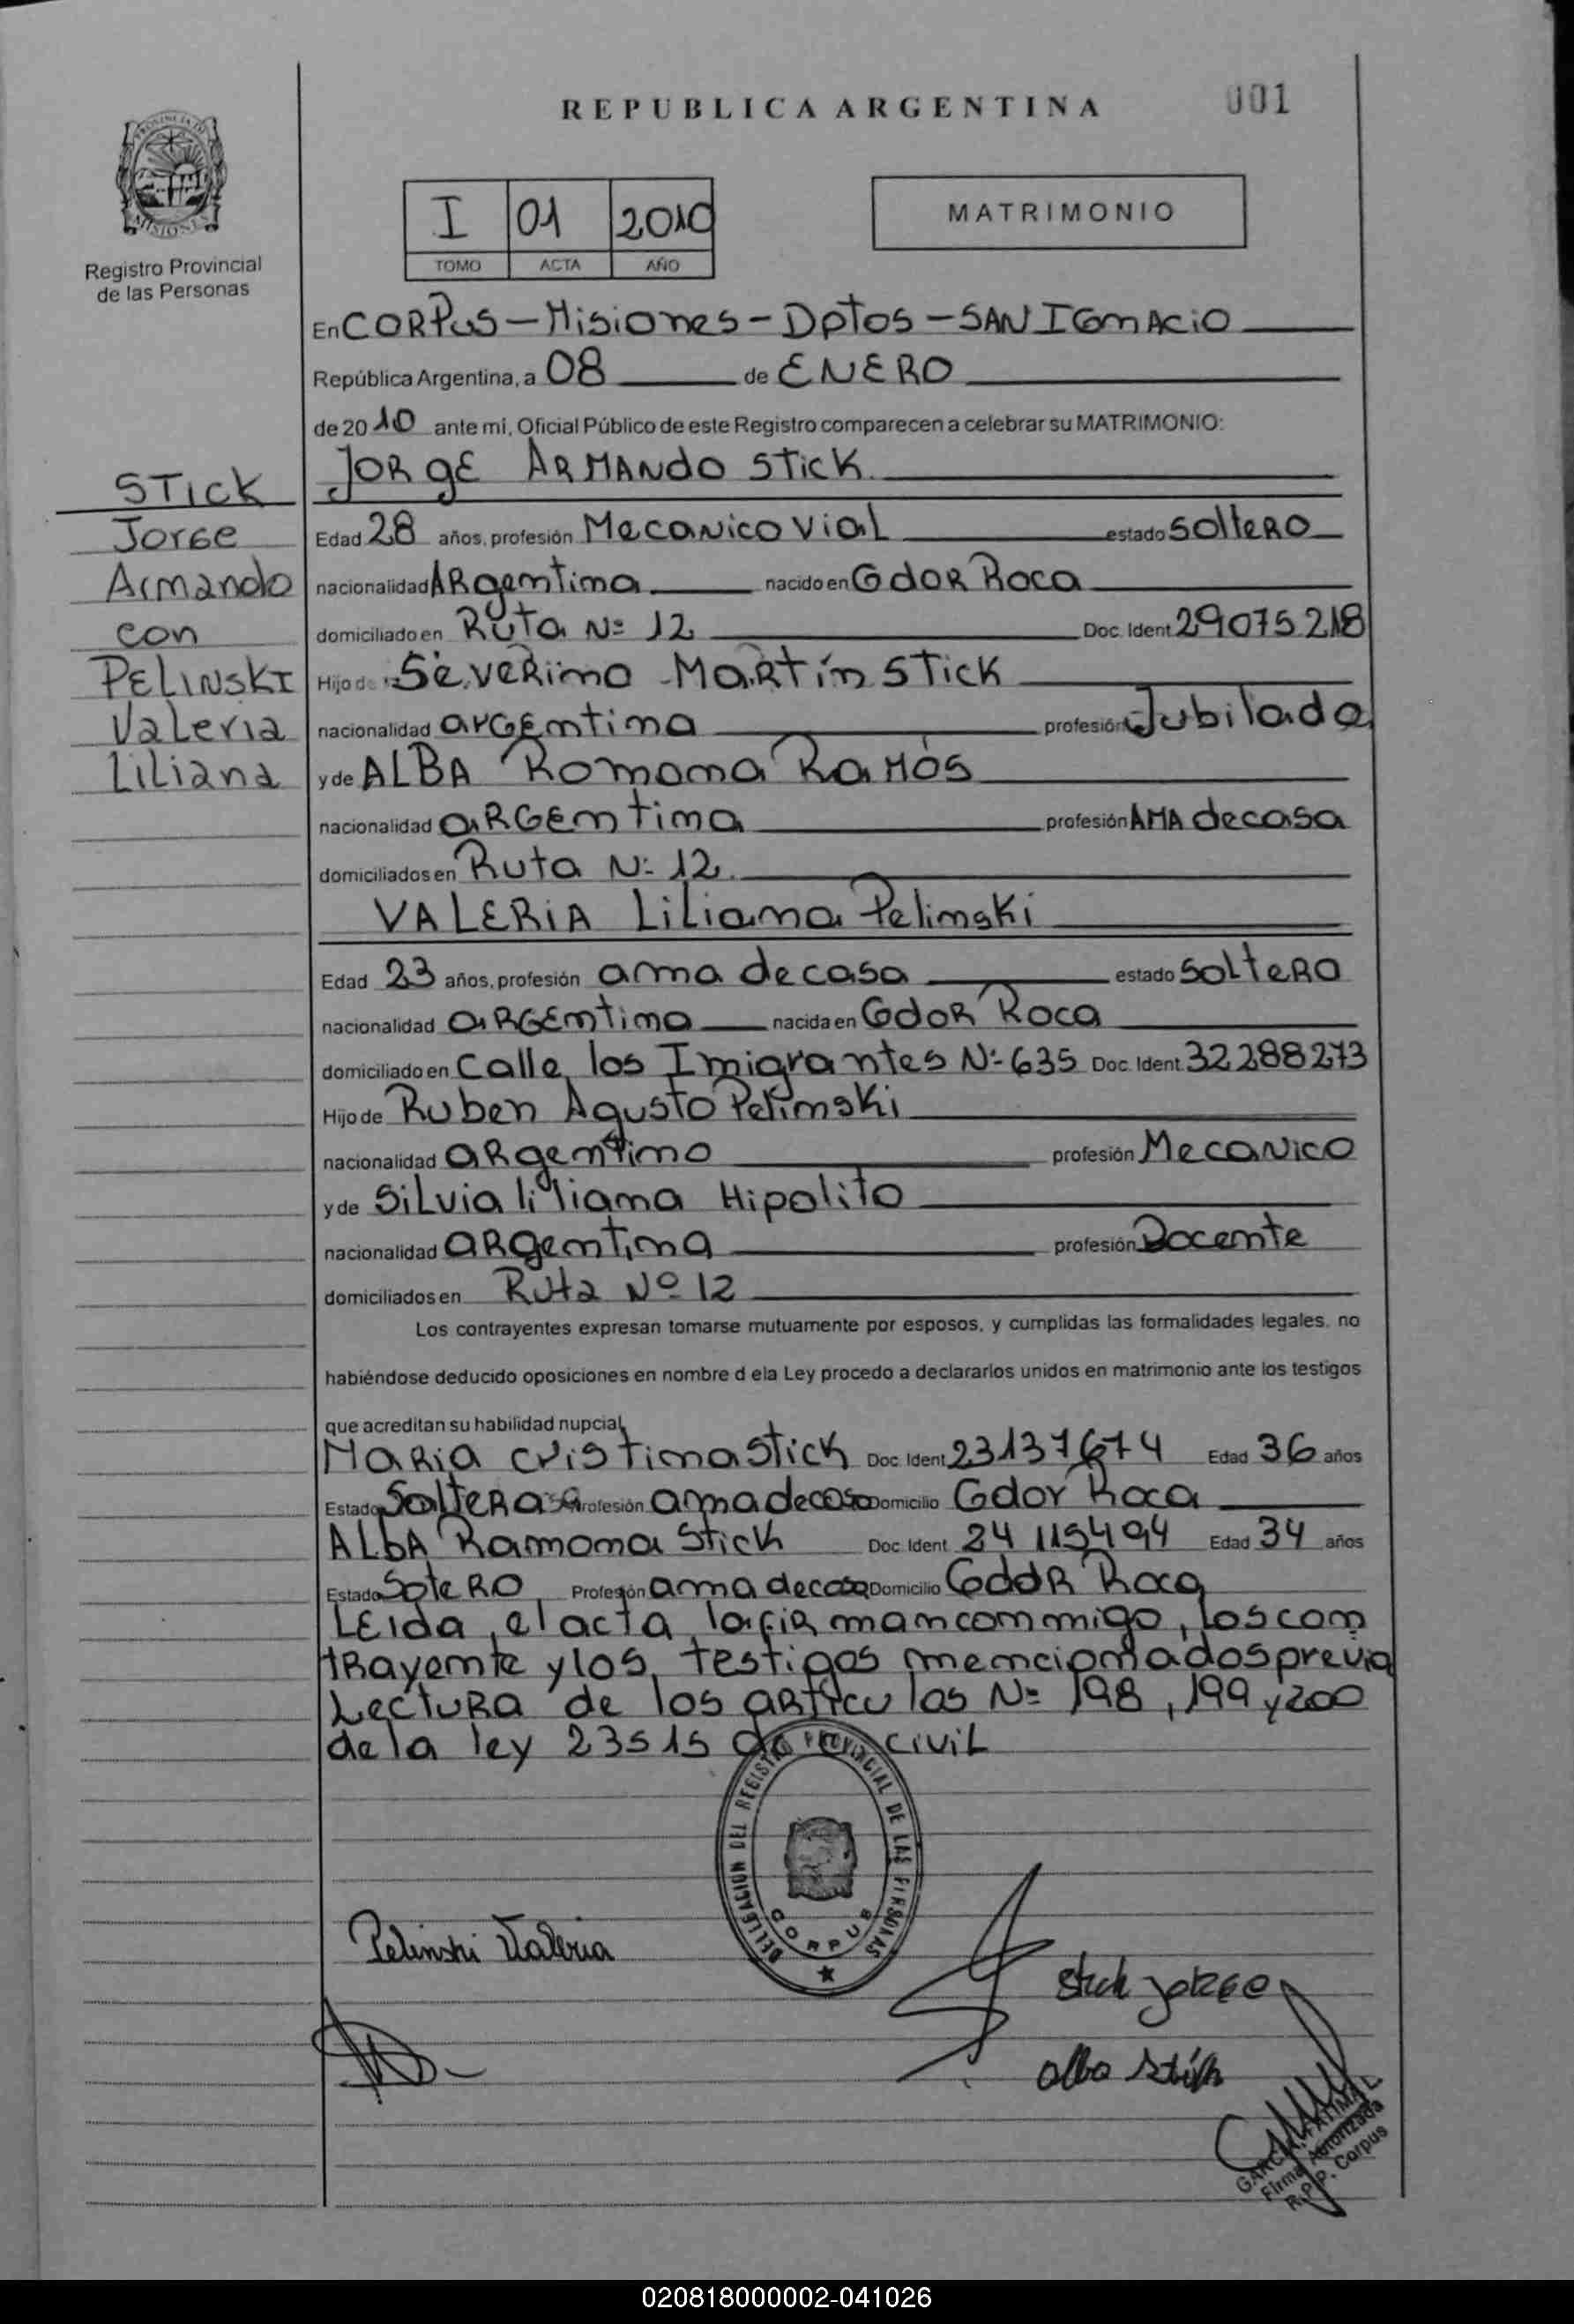 REPUBLICA ARGENTINA
001
PROVINCIA DE
MISIONES
Registro Provincial
de las Personas
I 01 2010
TOMO ACTA AÑO
MATRIMONIO
En CORPUS - Misiones - Dptos - SAN IGNACIO
República Argentina, a 08 de ENERO
de 2010 ante mi, Oficial Público de este Registro comparecen a celebrar su MATRIMONIO:
STICK
Jorge
Armando
con
PELINSKI
Valeria
Liliana
JORGE ARMANDO STICK
Edad 28 años, profesión Mecanico Vial estado SOLTERO
nacionalidad ARgentina nacido en Gdor Roca
domiciliado en Ruta Nº 12 Doc. Ident 29075218
Hijo de Severino Martín STICK
nacionalidad argentina profesión Jubilado
y de ALBA Romona Ramós
nacionalidad argentina profesión AMA de casa
domiciliados en Ruta Nº 12.
VALERIA Liliana Pelinski
Edad 23 años, profesión ama de casa estado SOLTERO
nacionalidad argentina nacida en Gdor Roca
domiciliado en Calle los Imigrantes Nº 635 Doc. Ident. 32288273
Hijo de Ruben Agusto Pelinski
nacionalidad argentino profesión Mecanico
y de Silvia liliana Hipolito
nacionalidad argentina profesión Docente
domiciliados en Ruta Nº 12
Los contrayentes expresan tomarse mutuamente por esposos, y cumplidas las formalidades legales, no
habiéndose deducido oposiciones en nombre d ela Ley procedo a declararlos unidos en matrimonio ante los testigos
que acreditan su habilidad nupcial,
MARIA cristina Stick Doc. Ident 23137674 Edad 36 años
Estado Soltera Profesión ama de casa Domicilio Gdor Roca
ALbA Ramona Stick Doc. Ident. 24 115494 Edad 34 años
Estado SoteRO Profesión ama de casa Domicilio Gdor Roca
LEIda, el acta, la firman conmigo, los con
trayente y los, testigos mencionados previa
Lectura de los articulos Nº 198, 199 y 200
de la ley 23515 CIVIL
DELLEGACION DEL REGISTRO PROVINCIAL DE LAS PERSONAS
CORPUS
Pelinski Valeria
Stick Jorge
alba Stick
GARCIA, FATIMA L
Firma Autorizada
R.P.P. Corpus
020818000002-041026